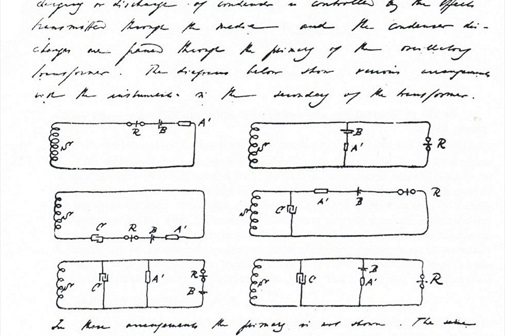 charging or discharge of condenser is controlled by the effects
transmitted through the media and the condenser dis-
charges are passed through the primary of the oscillatory
transformer. The diagrams below show various arrangements
with the instruments in the secondary of the transformer.
S R B A'
S B A' R
S C R B A'
S C A' B R
S C A' R B
S C B A' R
In these arrangements the primary is not shown. The same